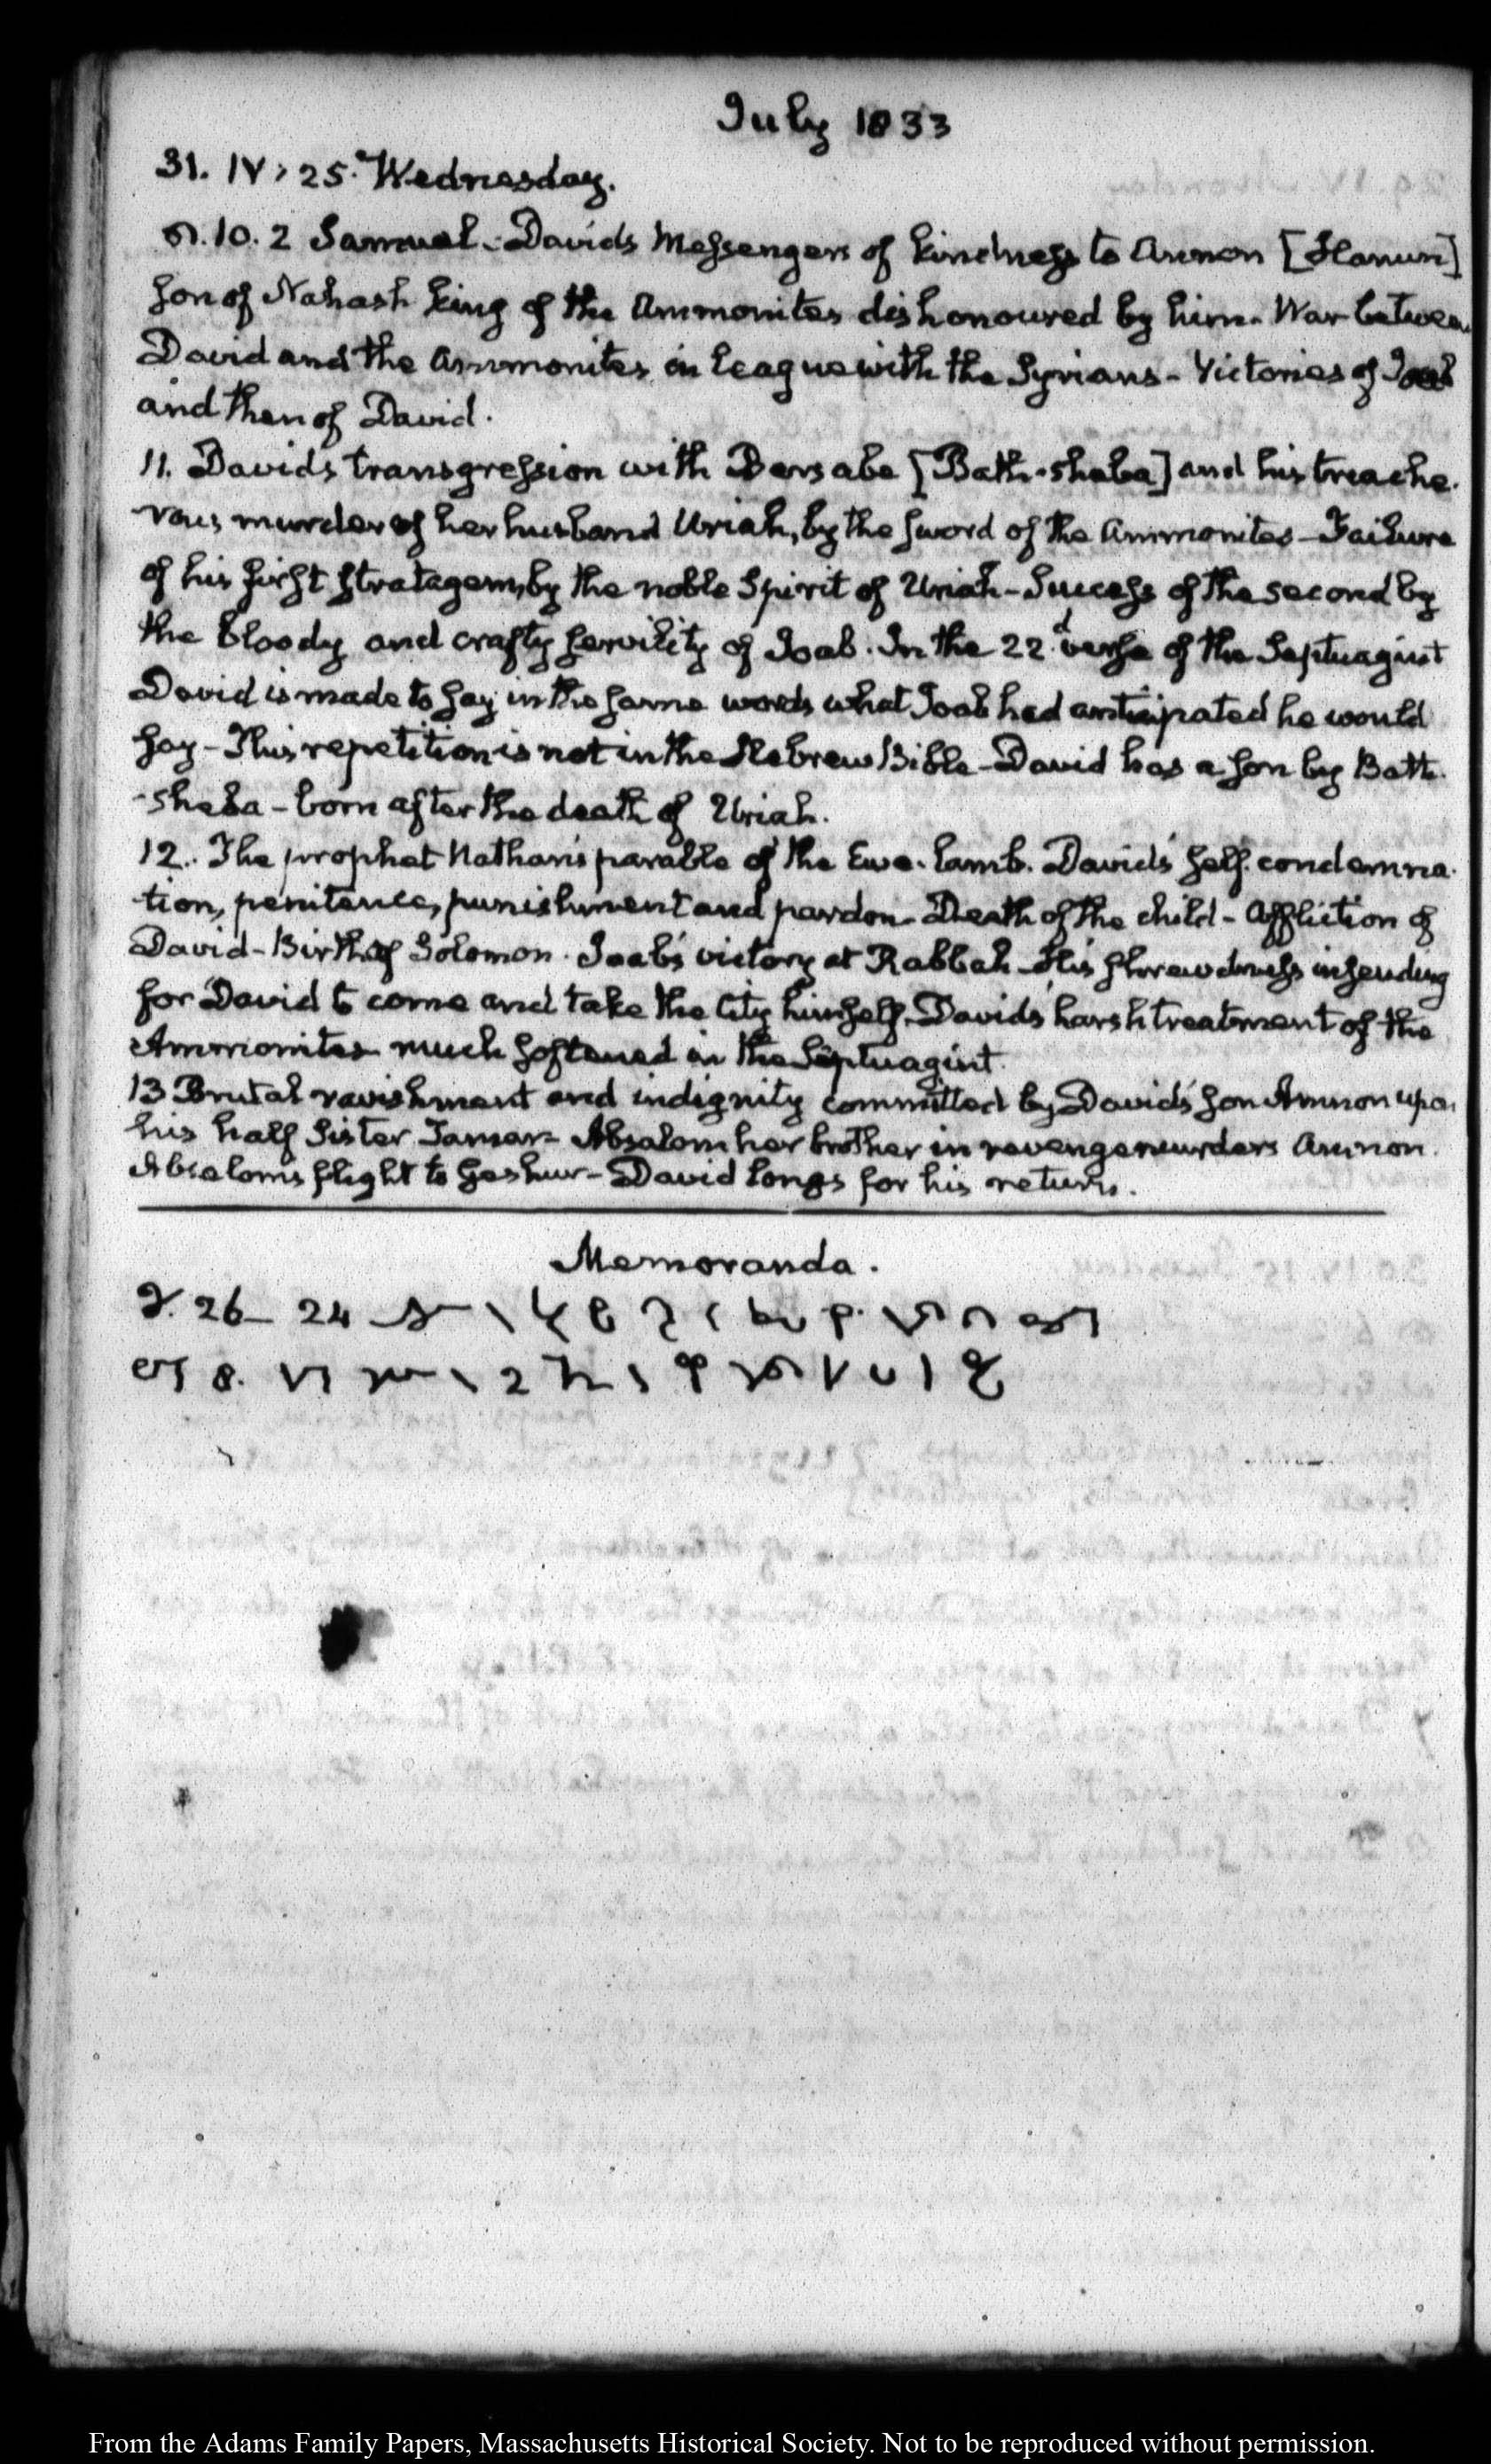 July 1833
31. IV: 25. Wednesday.
10. 2 Samuel - Davids Messengers of kindness to Annon [Hanun]
Son of Nahash King of the Ammonites dishonoured by him - War between
David and the Ammonites in league with the Syrians - Victories of Joab
and then of David.
11. David's transgression with Bersabe [Bath-sheba] and his treache-
-rous murder of her husband Uriah, by the sword of the Ammonites - Failure
of his first stratagem, by the noble Spirit of Uriah - Success of the second by
the bloody and crafty servility of Joab. In the 22.d verse of the Septuagint
David is made to say in the same words what Joab had anticipated he would
say - This repetition is not in the Hebrew Bible - David has a son by Bath-
-sheba - born after the death of Uriah.
12. The prophet Nathan's parable of the Ewe-lamb. David's self-condemna-
-tion, penitence, punishment and pardon - Death of the child - Affliction of
David - Birth of Solomon. Joab's victory at Rabbah - His shrewdness in sending
for David to come and take the City himself. David's harsh treatment of the
Ammonites much softened in the Septuagint.
13 Brutal ravishment and indignity committed by David's son Amnon upon
his half Sister Tamar - Absalom her brother in revenge murders Amnon.
Absalom's flight to Geshur - David longs for his return.
Memoranda.
26 - 24
8.
From the Adams Family Papers, Massachusetts Historical Society. Not to be reproduced without permission.